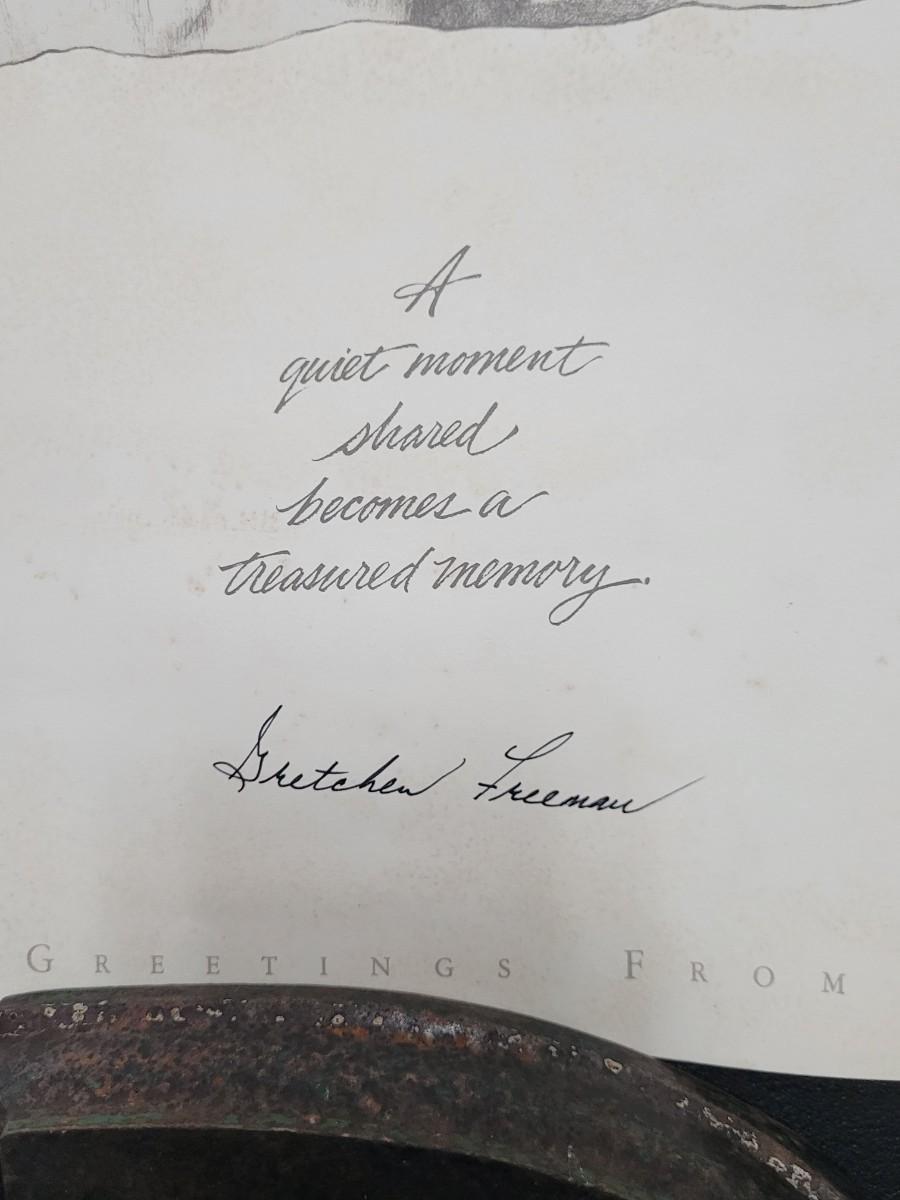 A
quiet moment
shared
becomes a
treasured memory.
Gretchen Freeman
GREETINGS FROM